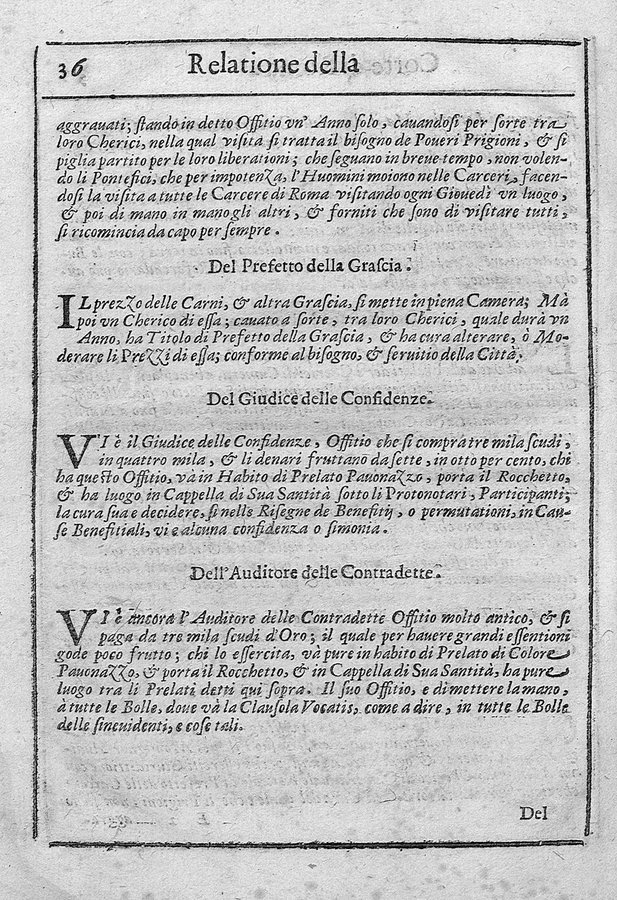 36 Relatione della
aggravati; stando in detto Offitio vn' Anno solo, cauandosi per sorte tra
loro Cherici, nella qual visita si tratta il bisogno de Poueri Prigioni, & si
piglia partito per le loro liberationi; che seguano in breue tempo, non volen-
do li Pontefici, che per impotenza, l'Huomini moiono nelle Carceri, facen-
dosi la visita a tutte le Carcere di Roma visitando ogni Giouedì vn luogo,
& poi di mano in mano gli altri, & forniti che sono di visitare tutti,
si ricomincia da capo per sempre.
Del Prefetto della Grascia.
IL prezzo delle Carni, & altra Grascia, si mette in piena Camera; Mà
poi vn Cherico di essa; cauato a sorte, tra loro Cherici, quale durà vn
Anno, ha Titolo di Prefetto della Grascia, & ha cura alterare, ò Mo-
derare li Prezzi di essa; conforme al bisogno, & seruitio della Città.
Del Giudice delle Confidenze.
VI è il Giudice delle Confidenze, Offitio che si compra tre mila scudi,
in quattro mila, & li denari fruttano da sette, in otto per cento, chi
ha questo Offitio, và in Habito di Prelato Pauonazzo, porta il Rocchetto,
& ha luogo in Cappella di Sua Santità sotto li Protonotari, Participanti;
la cura sua e decidere, si nelle Risegne de Benefitij, o permutationi, in Cau-
se Benefitiali, vi e alcuna confidenza o simonia.
Dell'Auditore delle Contradette.
VI è ancora l'Auditore delle Contradette Offitio molto antico, & si
paga da tre mila scudi d'Oro; il quale per hauere grandi essentioni
gode poco frutto; chi lo essercita, và pure in habito di Prelato di Colore
Pauonazzo, & porta il Rocchetto, & in Cappella di Sua Santità, ha pure
luogo tra li Prelati detti qui sopra. Il suo Offitio, e di mettere la mano,
à tutte le Bolle, doue và la Clausola Vocatis, come a dire, in tutte le Bolle
delle sincuidenti, e cose tali.
Del